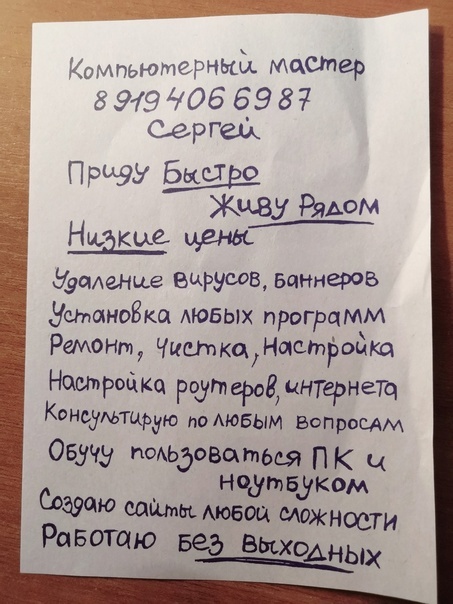 Компьютерный мастер
89194066987
Сергей
Приду Быстро
Живу Рядом
Низкие цены
Удаление вирусов, баннеров
Установка любых программ
Ремонт, Чистка, Настройка
Настройка роутеров, интернета
Консультирую по любым вопросам
Обучу пользоваться ПК и
ноутбуком
Создаю сайты любой сложности
Работаю без выходных